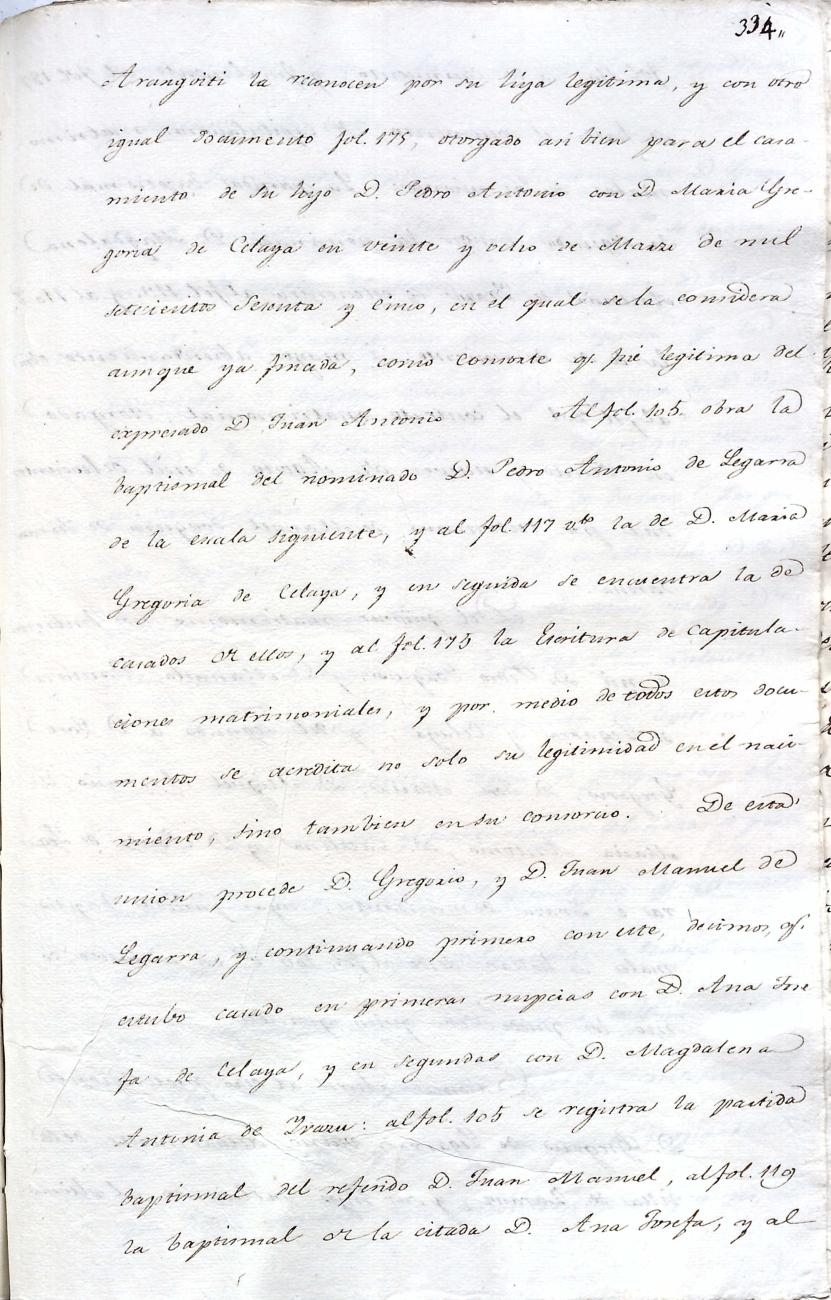 334„
Arangoiti la reconocen por su hija legitima, y con otro
igual Documento fol. 175, otorgado asi bien para el casa-
miento de su hijo D. Pedro Antonio con D. Maria Gre-
goria de Celaya en veinte y ocho de Marzo de mil
setecientos sesenta y cinco, en el qual se la considera
aunque ya finada, como consorte q. fué legitima del
expresado D. Juan Antonio Al fol. 105. obra la
baptismal del nominado D. Pedro Antonio de Legarra
de la escala siguiente, y al fol. 117 vto la de D. Maria
Gregoria de Celaya, y en seguida se encuentra la de
casados de ellos, y al fol. 175 la Escritura de Capitula-
ciones matrimoniales, y por medio de todos estos docu-
mentos se acredita no solo su legitimidad en el naci-
miento, sino tambien en su consorcio. De esta
union procede D. Gregorio, y D. Juan Manuel de
Legarra, y continuando primero con este, decimos, q.
estubo casado en primeras nupcias con D. Ana Jose
fa de Celaya, y en segundas con D. Magdalena
Antonia de Yrazu: al fol. 105 se registra la partida
baptismal del referido D. Juan Manuel, al fol. 119
la baptismal de la citada D. Ana Josefa, y al